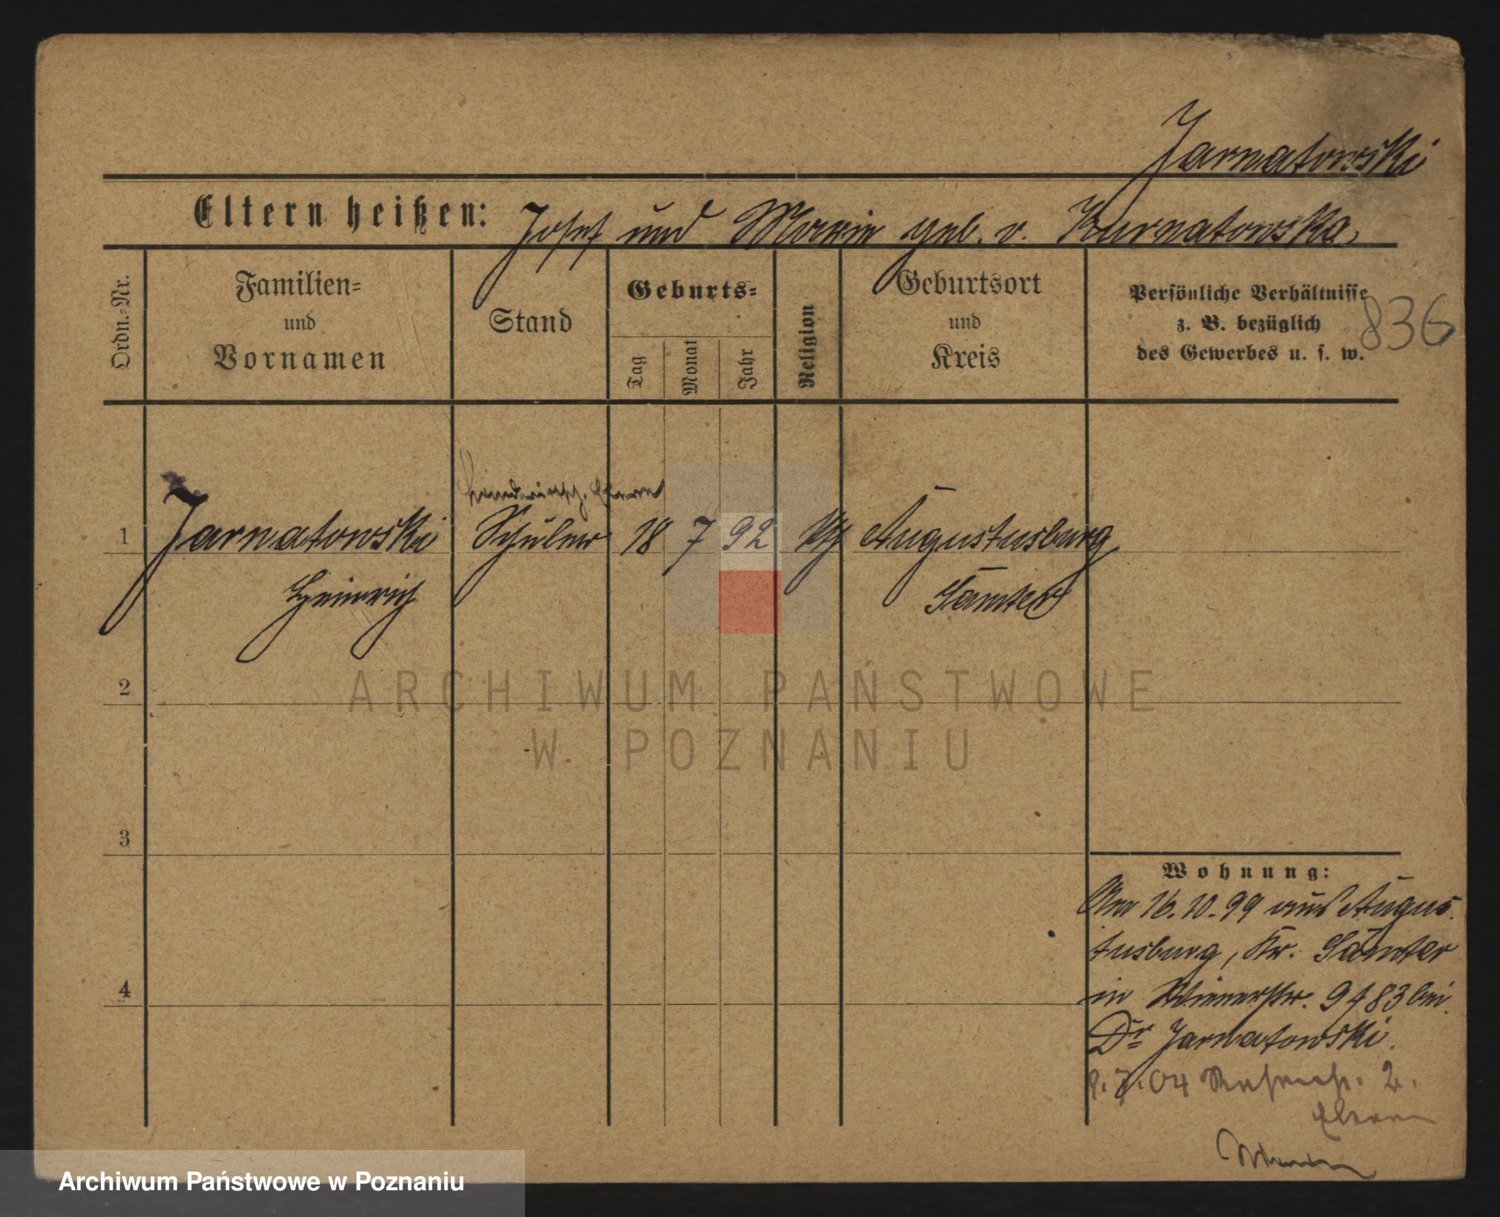 Jarnatowski
Eltern heißen: Josef und Marie geb. v. Kurnatowska,
Ordn.-Nr.
Familien-
und
Vornamen
Stand
Geburts-
Tag
Monat
Jahr
Religion
Geburtsort
und
Kreis
Persönliche Verhältnisse
z. B. bezüglich
des Gewerbes u. s. w.
836
1 Jarnatowski Schüler 18 7 92 Augustusburg
Heinrich Samter
2
3
4
Wohnung:
Am 16.10.99 aus Augus-
tusburg, Kr. Samter
in Wienerstr. bei
Dr Jarnatowski.
8.7.04 2.
Eltern
ARCHIWUM PAŃSTWOWE
W POZNANIU
Archiwum Państwowe w Poznaniu